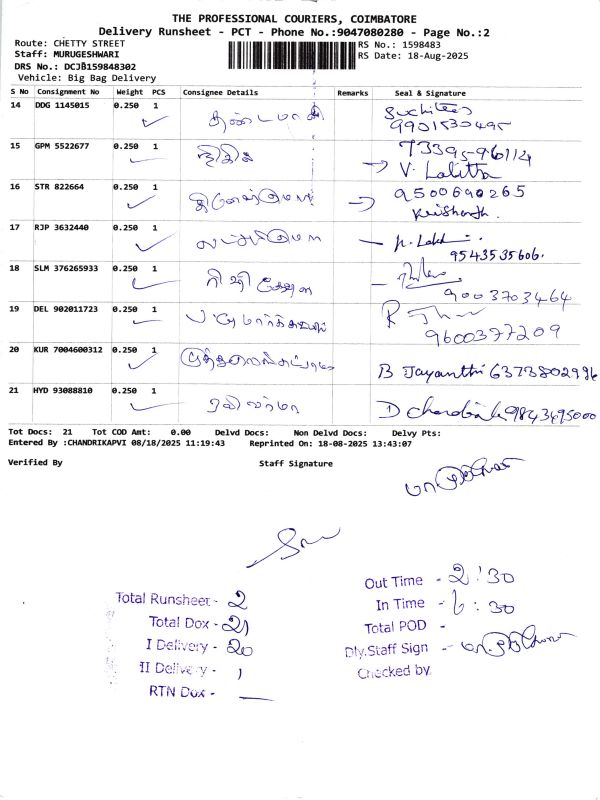 THE PROFESSIONAL COURIERS, COIMBATORE
Delivery Runsheet - PCT - Phone No.:9047080280 - Page No.:2
Route: CHETTY STREET
RS No.: 1598483
Staff: MURUGESHWARI
RS Date: 18-Aug-2025
DRS No.: DCJB159848302
Vehicle: Big Bag Delivery
S No Consignment No Weight PCS Consignee Details Remarks Seal & Signature
14 DDG 1145015 0.250 1
9901530495
15 GPM 5522677 0.250 1 நிதிக 73395-96114
V. Lalitha
16 STR 822664 0.250 1 9500690265
Krishanth.
17 RJP 3632440 0.250 1
9543535606.
18 SLM 376265933 0.250 1
9003703464
19 DEL 902011723 0.250 1
9600377209
20 KUR 7004600312 0.250 1 B Jayanthi 6373802996
21 HYD 93088810 0.250 1 ரவிவர்மா 9843495000
Tot Docs: 21 Tot COD Amt: 0.00 Delvd Docs: Non Delvd Docs: Delvy Pts:
Entered By :CHANDRIKAPVI 08/18/2025 11:19:43 Reprinted On: 18-08-2025 13:43:07
Verified By Staff Signature
Out Time - 2:30
Total Runsheet - 2
In Time - 6:30
Total Dox - 21
Total POD -
I Delivery - 20
Dly.Staff Sign -
II Delivery - 1
Checked by
RTN Dox - —